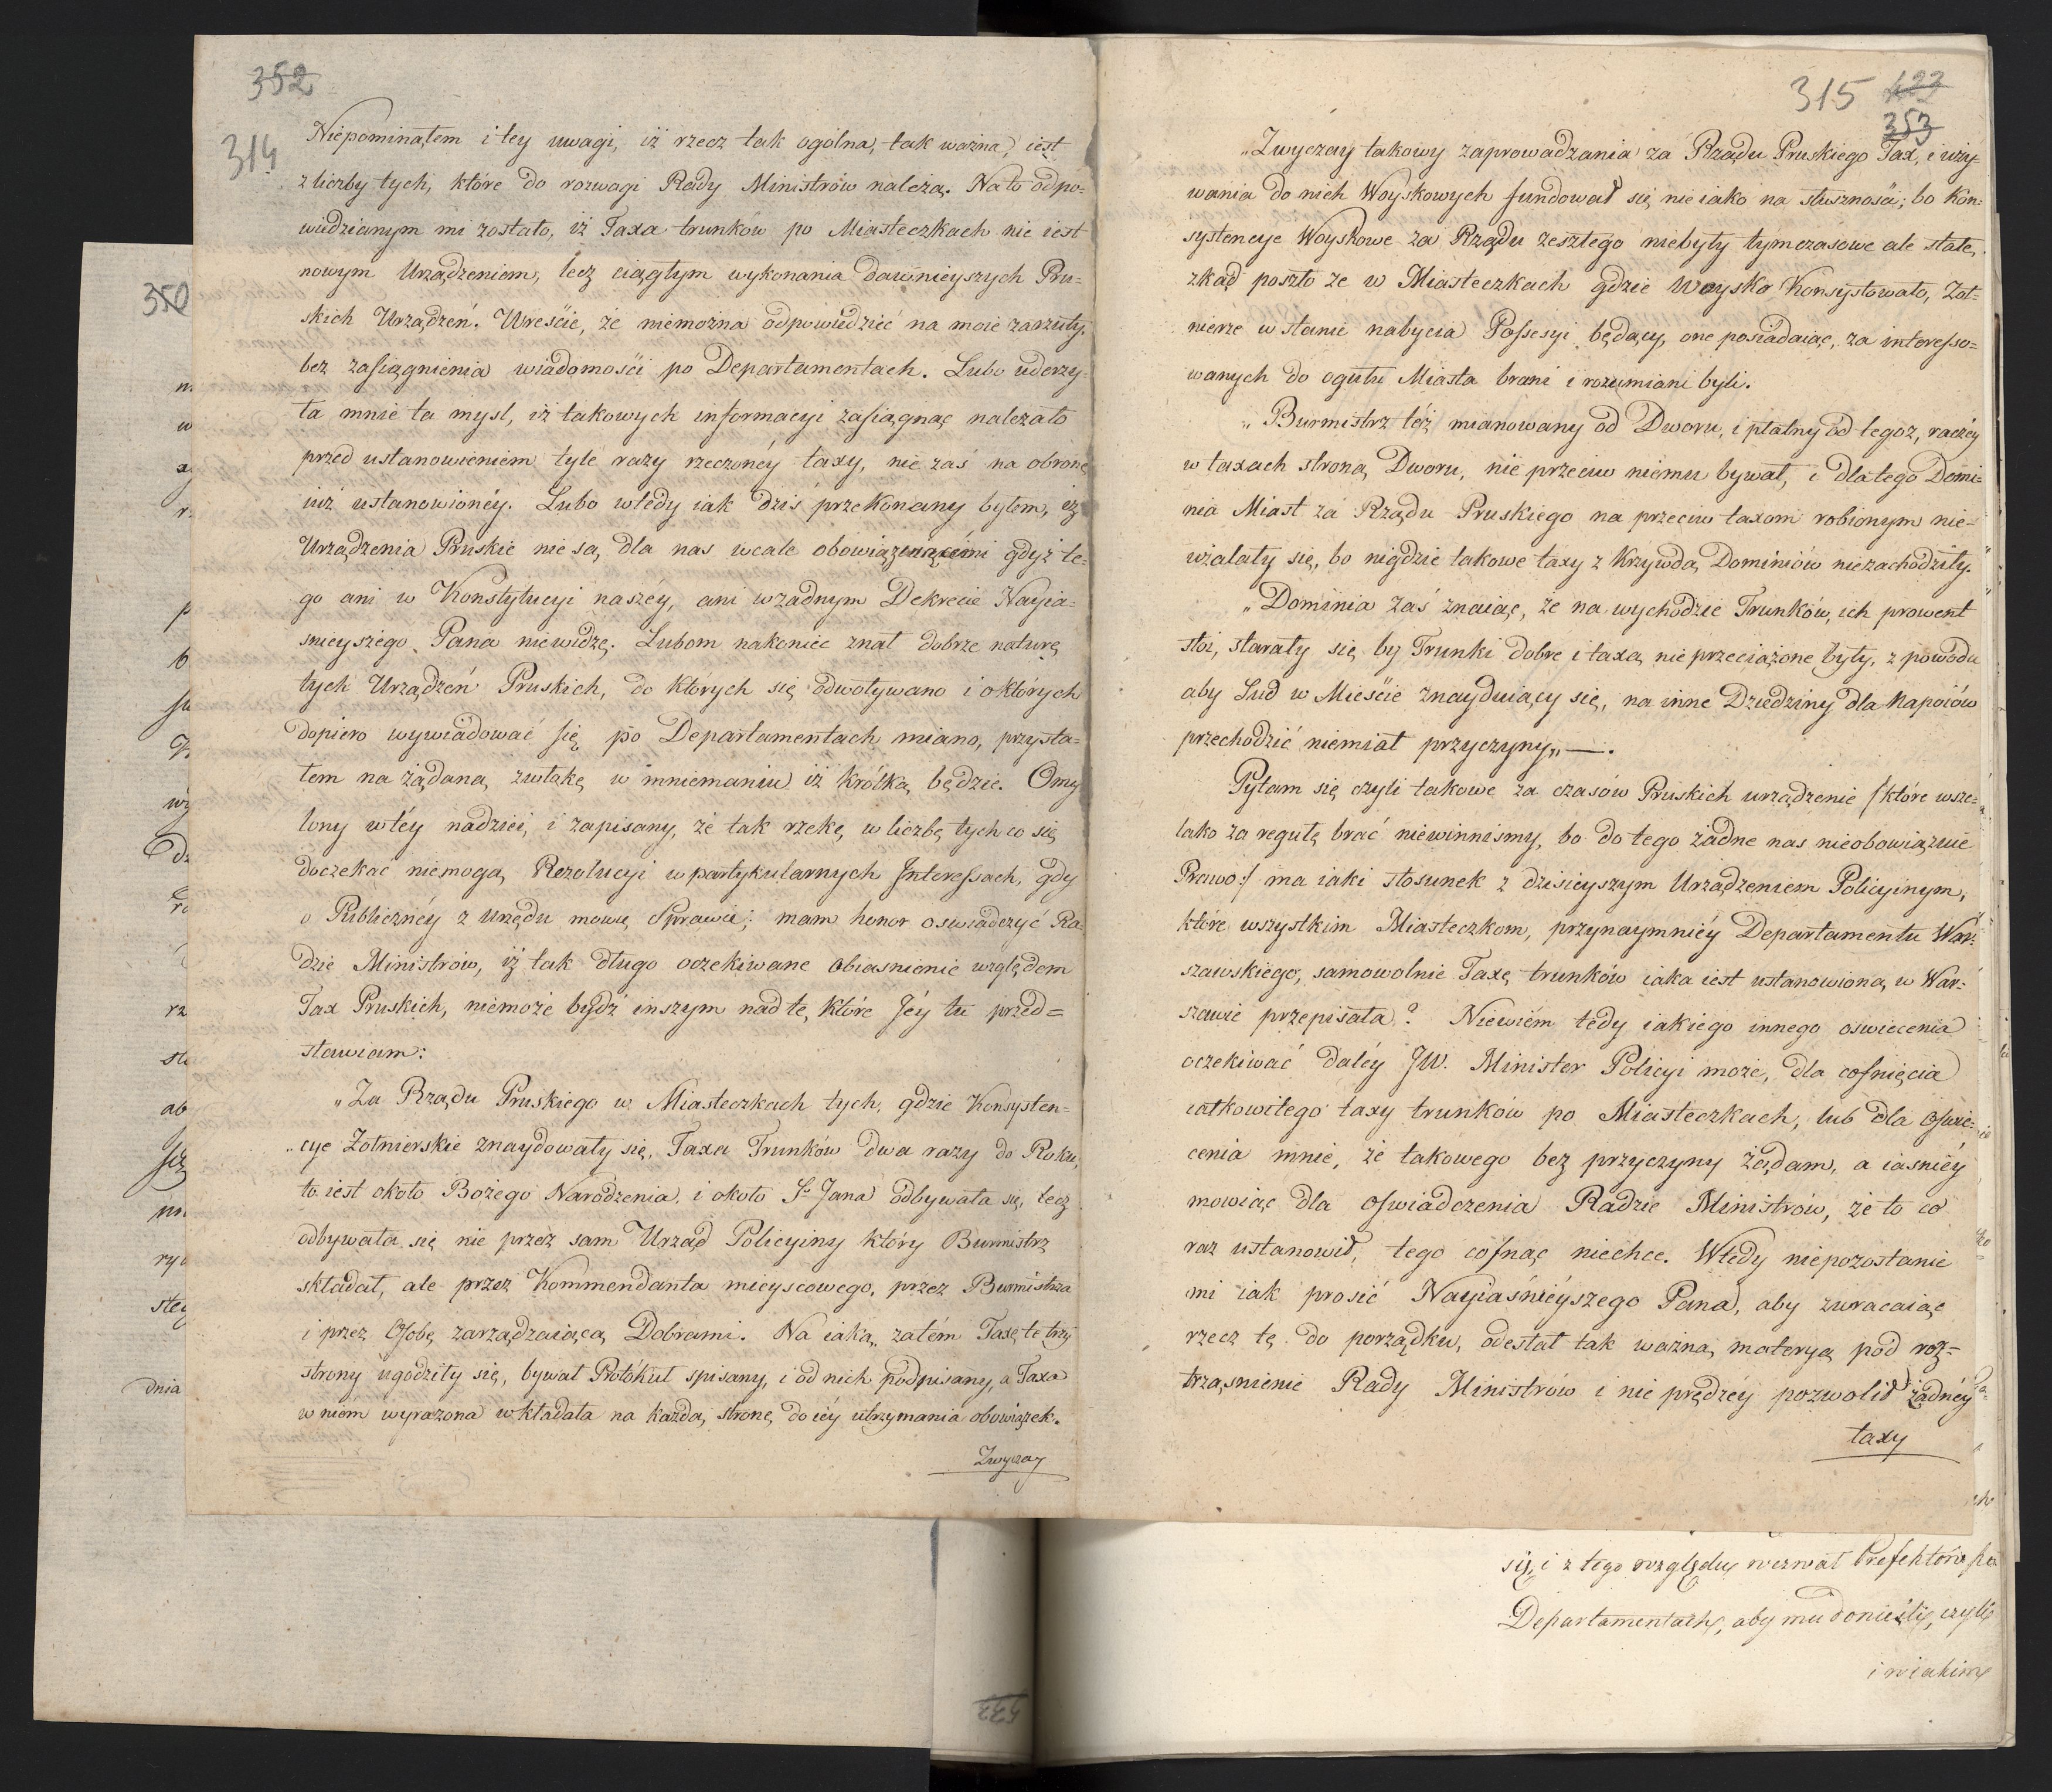 352
314
Niepominałem i tey uwagi, iż rzecz tak ogólna, tak ważna, iest
z liczby tych, które do rozwagi Rady Ministrów należą. Na to odpo=
wiedzianym mi zostało, iż Taxa trunków po Miasteczkach nie iest
nowym Urządzeniem, lecz ciągłym wykonania dawnieyszych Pru=
skich Urządzeń. Wreście, że niemożna odpowiedzieć na moie zarzuty,
bez zasiągnienia wiadomości po Departamentach. Lubo uderzy=
ła mnie ta mysl, iż takowych informacyi zasiągnąć należało
przed ustanowieniem tylé razy rzeczonéy taxy, nie zaś na obronę
iuż ustanowionéy. Lubo wtedy iak dziś przekonany byłem, iż
Urządzenia Pruskie nie są, dla nas wcale obowiązuiącémi gdyż te=
go ani w Konstytucyi naszéy, ani w żadnym Dekrecie Nayia=
snieyszégo Pana niewidzę. Lubom nakoniec znał dobrze naturę
tych Urządzeń Pruskich, do których się odwoływano i o których
dopiero wywiadować się po Departamentach miano, przysta=
łem na żądaną zwłokę w mniemaniu iż krótką będzie. Omy
lony w téy nadziei, i zapisany, że tak rzekę, w liczbę tych co się
doczekać niemogą, Rezolucyi w partykularnych Interessach, gdy
o Publicznéy z urzędu mowię Sprawie; mam honor oswiadczyć Ra=
dzie Ministrów, iż tak długo oczekiwane obiasnienie względem
Tax Pruskich, niemoże bydź inszym nad te, które Jéy tu przed=
stawiam:
„Za Rządu Pruskiego w Miasteczkach tych, gdzie Konsysten=
„cye Żołnierskie znaydowały się, Taxa Trunków dwa razy do Roku,
to iest około Bożego Narodzenia, i około Sº Jana odbywała się, lecz
odbywała się nie przez sam Urząd Policyiny który Burmistrz
składał, ale przez Kommendanta mieyscowego, przez Burmistrza
i przez Osobę zarządzaiącą Dobrami. Na iaką, zatém Taxę te trzy
strony ugodziły się, bywał Protókuł spisany, i od nich podpisany, a Taxa
w niem wyrażona wkładała na każdą, stronę do iéy utrzymania obowiązek.
Zwyczay
315
353
„Zwyczay takowy zaprowadzania za Rządu Pruskiego Tax, i uży=
wania do nich Woyskowych fundował się nieiako na słuszności; bo Kon=
systencye Woyskowe za Rządu zeszłego niebyły tymczasowe ale stałe,
zkąd poszło że w Miasteczkach gdzie Woysko Konsystowało, Żoł=
nierze w stanie nabycia Possesyi będący, one posiadaiąc, za interesso=
wanych do ogułu Miasta brani i rozumiani byli.
„Burmistrz téż mianowany od Dworu, i płatny od tegoż, raczéy
w taxach stroną Dworu, nie przeciw niemu bywał, i dlatego Domi=
nia Miast za Rządu Pruskiego na przeciw taxom robionym nie=
użalały się, bo nigdzie takowe taxy z Krzywdą Dominiów niezachodziły.
„Dominia zaś znaiąc, że na wychodzie Trunków, ich prowent
stoi, starały się by Trunki dobre i taxą nie przeciążone były, z powodu
aby Lud w Mieście znayduiący się, na inne Dziedziny dla Napoiów
przechodzić niemiał przyczyny„ —.
Pytam się czyli takowe za czasów Pruskich urządzenie /:które wsze=
lako za regułę brać niewinnismy, bo do tego żadne nas nieobowiązuie
Prawo:/ ma iaki stosunek z dzisieyszym Urządzeniem Policyinym,
które wszystkim Miasteczkom, przynaymniéy Departamentu War=
szawskiego, samowolnie Taxę trunków iaka iest ustanowiona w War=
szawie przepisała? Niewiém tedy iakiego innego oswiecenia
oczekiwać daléy JW. Minister Policyi może, dla cofnięcia
całkowitego taxy trunków po Miasteczkach, lub dla oswie=
cenia mnie, że takowego bez przyczyny żądam, a iasniéy
mowiąc dla oswiadczenia Radzie Ministrów, że to co
raz ustanowił, tego cofnąć niechce. Wtedy niepozostanie
mi iak prosić Nayiaśniéyszego Pana, aby zwracaiąc
rzecz tę do porządku, odesłał tak ważną materyą pod roz=
trząsnienie Rady Ministrów i nie prędzéy pozwolił żadnéy
taxy
350
dnia
się, i z tego względu wezwał Prefektów po
Departamentach, aby mu donieśli, czyli
i w iakim